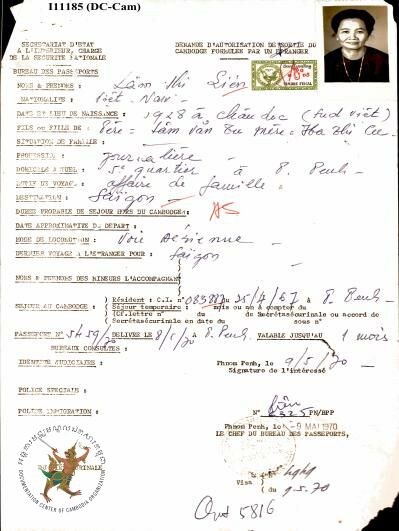 I11185 (DC-Cam)
SECRETARIAT D'ETAT
A L'INTERIEUR, CHARGE
DE LA SECURITE NATIONALE
DEMANDE D'AUTORISATION DE SORTIE DU
CAMBODGE FORMULEE PAR UN ETRANGER
BUREAU DES PASSEPORTS
NOMS & PRENOMS : Lâm Thi Liên
NATIONALITE : Việt-Nam
DATE ET LIEU DE NAISSANCE : 1928 à Châu doc (Sud Việt)
FILS ou FILLE DE : Père = Lâm Văn Tu mère =
SITUATION DE FAMILLE :
PROFESSION : journalière
DOMICILE ACTUEL : 5e quartier à P. Penh
MOTIF DU VOYAGE : affaire de famille
DESTINATION : Saigon
DUREE PROBABLE DE SEJOUR HORS DU CAMBODGE:
DATE APPROXIMATIVE DU DEPART :
MODE DE LOCOMOTION : Voie Aérienne
DERNIER VOYAGE A L'ETRANGER POUR : Saigon
NOMS & PRENOMS DES MINEURS L'ACCOMPAGNANT
Résident : C.I. n° du 25/4/67 à P. Penh
SEJOUR AU CAMBODGE : Séjour temporaire : mois ou à compter du
(Cf.lettre n° du Secrétasécurinale ou accord de
Secrétasécurinale en date du sous n°
PASSEPORT N° 5459/70 DELIVRE LE 8/5/70 à P. Penh VALABLE JUSQU'AU 1 mois
BUREAUX CONSULTES :
IDENTITE JUDICIAIRE : Phnom Penh, le 9/5/70
Signature de l'intéressé
POLICE SPECIALE :
Liên
POLICE IMMIGRATION : N° 2325 PN/BPP
Phnom Penh, le - 9 MAI 1970
LE CHEF DU BUREAU DES PASSEPORTS,
DOCUMENTATION CENTER OF CAMBODIA ORGANIZATION
Visa
( du 9.5.70
5816